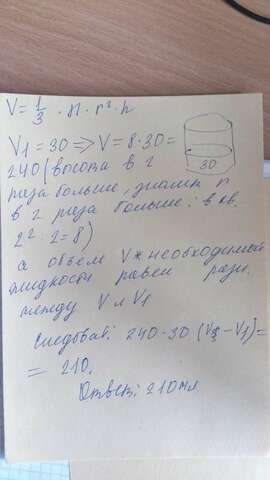 V = 1/3 · П · r² · h
V₁ = 30 => V = 8·30 =
30
240 (высота в 2
раза больше, диаметр
в 2 раза больше: в кв.
2² · 2 = 8)
а объем V* необходимой
жидкости равен разн.
между V и V₁
Следоват: 240 - 30 (V - V₁) =
= 210.
Ответ: 210мл